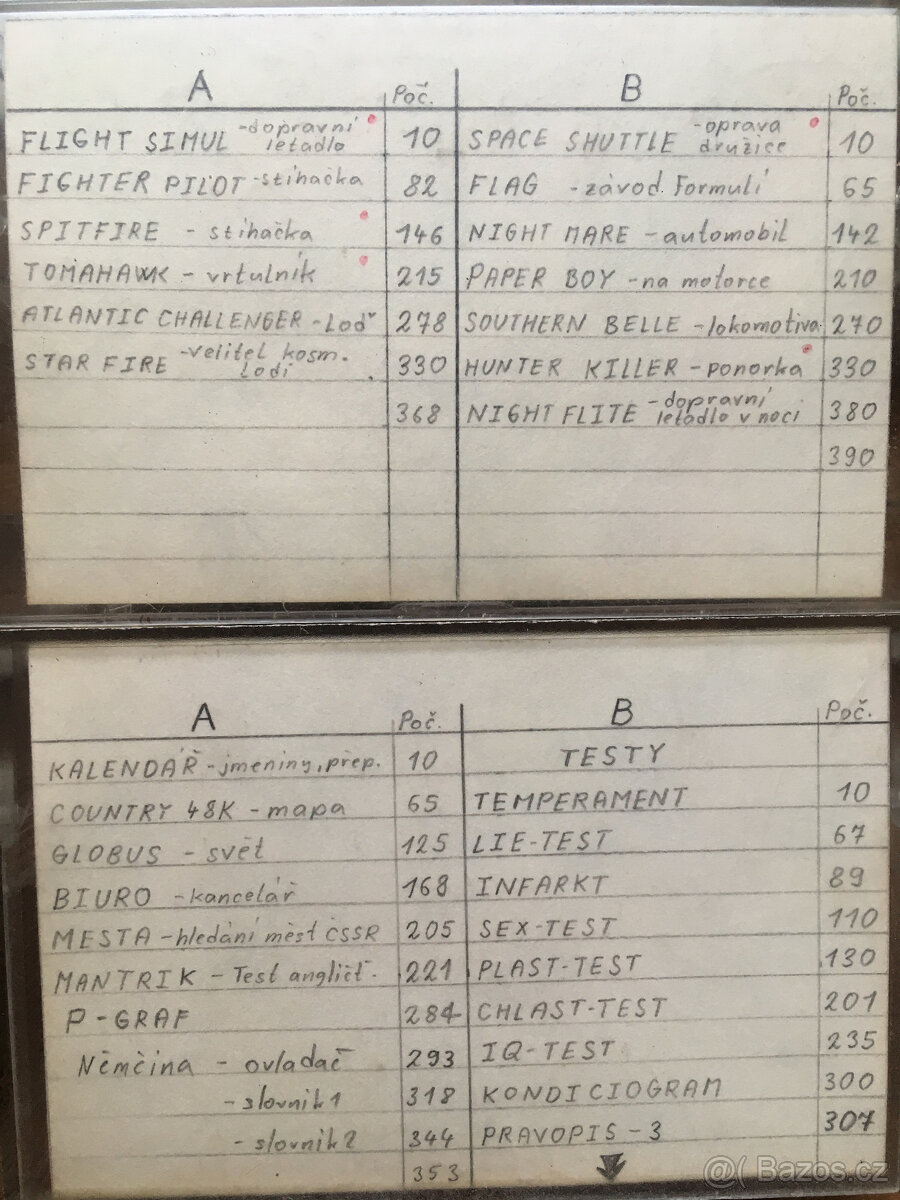 A Poč. B Poč.
FLIGHT SIMUL -dopravní letadlo 10 SPACE SHUTTLE -oprava družice 10
FIGHTER PILOT -stíhačka 82 FLAG -závod. Formulí 65
SPITFIRE - stíhačka 146 NIGHT MARE -automobil 142
TOMAHAWK - vrtulník 215 PAPER BOY -na motorce 210
ATLANTIC CHALLENGER -Loď 278 SOUTHERN BELLE -lokomotiva 270
STAR FIRE -velitel kosm. Lodi 330 HUNTER KILLER - ponorka 330
368 NIGHT FLITE -dopravní letadlo v noci 380
390
A Poč. B Poč.
KALENDÁŘ -jmeniny, přep. 10 TESTY
COUNTRY 48K - mapa 65 TEMPERAMENT 10
GLOBUS - svět 125 LIE-TEST 67
BIURO -kancelář 168 INFARKT 89
MESTA -hledání měst ČSSR 205 SEX-TEST 110
MANTRIK - Test angličt. 221 PLAST-TEST 130
P-GRAF 284 CHLAST-TEST 201
Němčina - ovladač 293 IQ-TEST 235
-slovník 1 318 KONDICIOGRAM 300
- slovník 2 344 PRAVOPIS -3 307
353
@( Bazos.cz